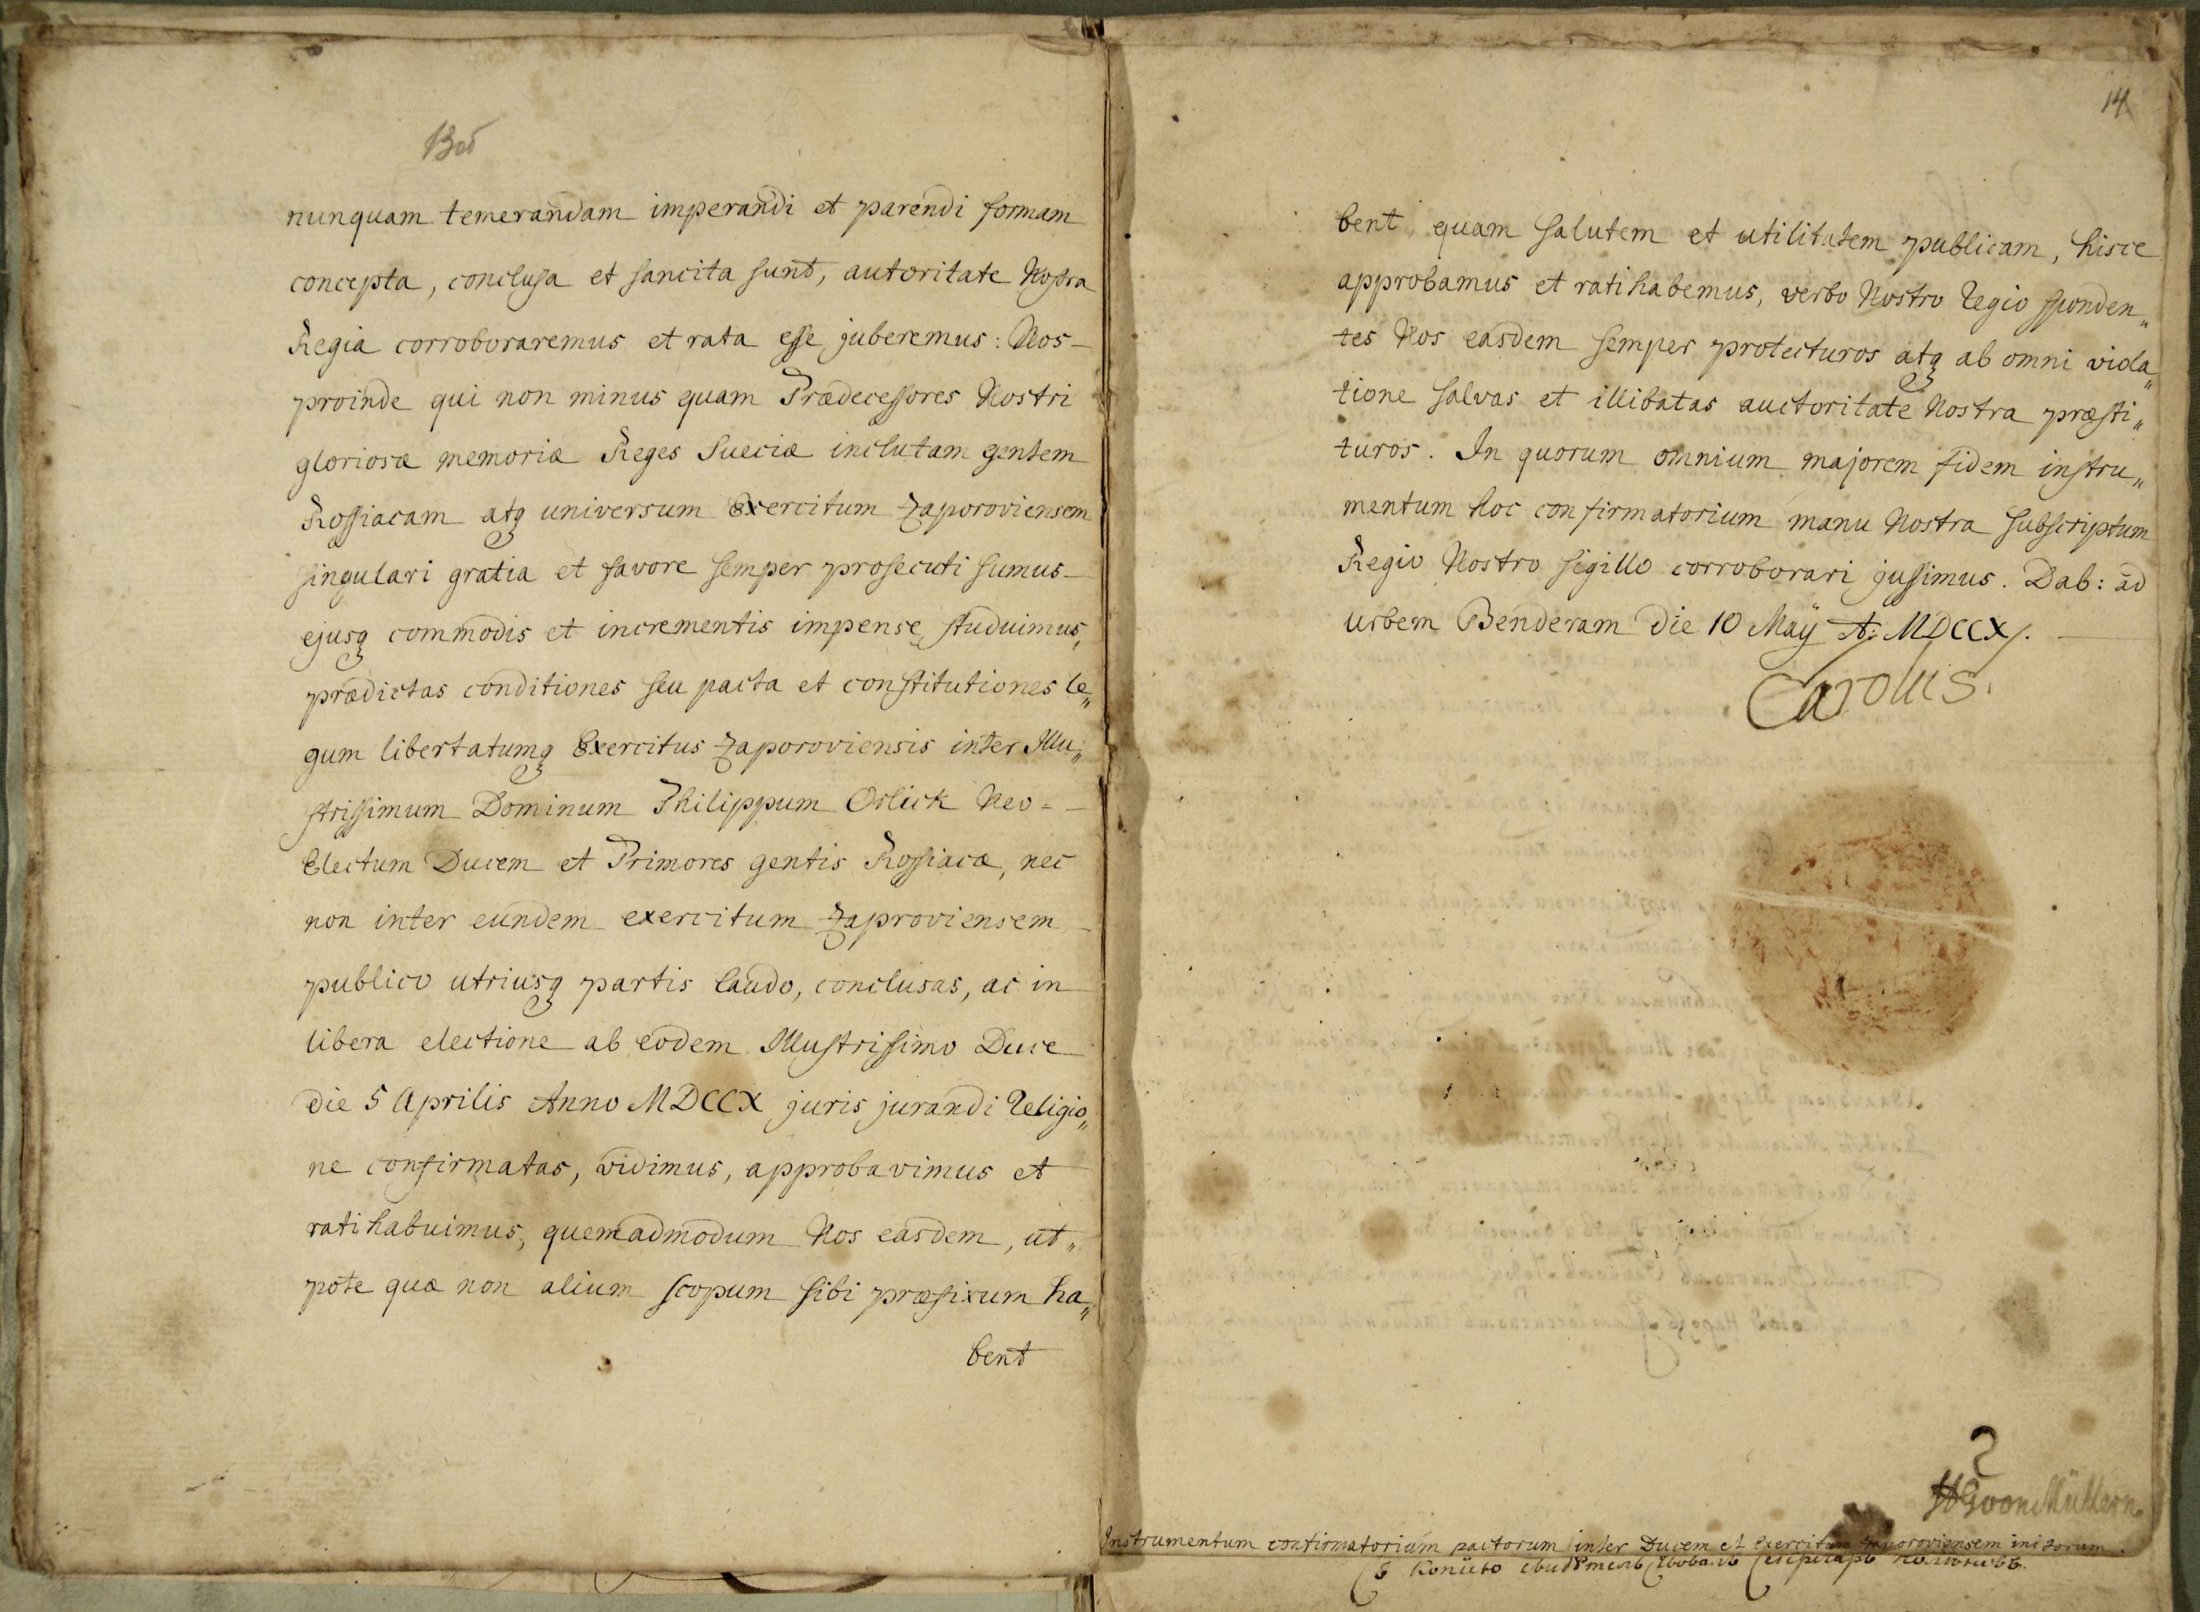 13
nunquam temerandam imperandi et parendi formam
concepta, conclusa et sancita sunt, autoritate Nostra
Regia corroboraremus et rata esse juberemus: Nos
proinde qui non minus quam Prædecessores Nostri
gloriosæ memoriæ Reges Sueciæ inclutam gentem
Rossiacam atq universum Exercitum Zaporoviensem
singulari gratia et favore semper prosecuti sumus
ejusq commodis et incrementis impense studuimus,
prædictas conditiones seu pacta et constitutiones le„
gum libertatumq Exercitus Zaporoviensis inter Illu„
strissimum Dominum Philippum Orlick Neo=
Electum Ducem et Primores gentis Rossiacæ, nec
non inter eundem exercitum Zaproviensem
publico utriusq partis laudo, conclusas, ac in
libera electione ab eodem Illustrissimo Duce
die 5 Aprilis Anno MDCCX juris jurandi Religio„
ne confirmatas, vidimus, approbavimus et
ratihabuimus, quemadmodum Nos easdem, ut„
pote quæ non alium scopum sibi præfixum ha„
bent
14
bent, quam salutem et utilitatem publicam, hisce
approbamus et ratihabemus, verbo Nostro Regio sponden„
tes Nos easdem semper protecturos atq ab omni viola„
tione salvas et illibatas auctoritate Nostra præsti„
turos. In quorum omnium majorem fidem instru„
mentum hoc confirmatorium manu Nostra subscriptum
Regio Nostro sigillo corroborari jussimus. Dab: ad
urbem Benderam die 10 Maÿ A: MDCCX.
Carolus.
HG von Müllern
Instrumentum confirmatorium pactorum inter Ducem et Exercitum Zaporoviensem initorum.